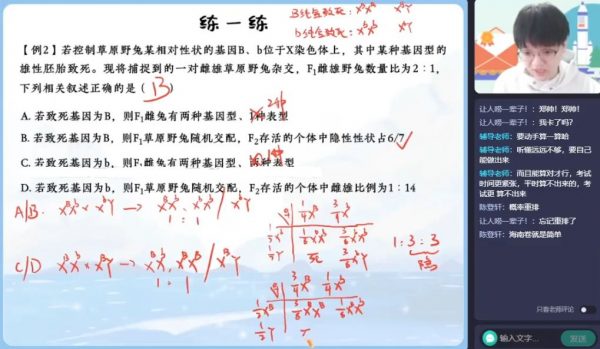 练一练
B纯合致死: XᴮXᴮ XᴮY
b纯合致死: XᵇXᵇ XᵇY
【例2】若控制草原野兔某相对性状的基因B、b位于X染色体上，其中某种基因型的
雄性胚胎致死。现将捕捉到的一对雌雄草原野兔杂交，F₁雌雄野兔数量比为2∶1，
下列相关叙述正确的是（ B ）
A. 若致死基因为B，则F₁雌兔有两种基因型、1种表型 2种
B. 若致死基因为B，则F₁草原野兔随机交配，F₂存活的个体中隐性性状占6/7 ✓
C. 若致死基因为b，则F₁雌兔有两种基因型、两种表型
D. 若致死基因为b，则F₁草原野兔随机交配，F₂存活的个体中雌雄比例为1∶14
A/B. XᴮXᵇ × XᵇY → XᴮXᵇ : XᵇXᵇ / XᵇY
1 : 1
♀ 1/4Xᴮ 3/4Xᵇ
1/2Xᵇ 1/8XᴮXᵇ 3/8XᵇXᵇ
1/2Y 死 3/8XᵇY
1:3:3
隐
C/D XᴮXᵇ × XᴮY → XᴮXᵇ : XᴮXᴮ / XᴮY
1 : 1
3/4Xᴮ 1/4Xᵇ
1/2Xᴮ 3/8XᴮXᴮ 1/8XᴮXᵇ
1/2Y
让人唠一辈子！: 郑帅！郑帅！
让人唠一辈子！: 我卡了吗？
辅导老师: 要动手算一算哈
辅导老师: 听懂远远不够，要自己
能做出来
辅导老师: 而且能算对才行，考试
时间更紧张，平时算不出来的，考
试更 算不出来
陈登轩: 概率重排
让人唠一辈子！: 忘记重排了
陈登轩: 海南卷就是简单
只看老师评论
输入文字...
发送